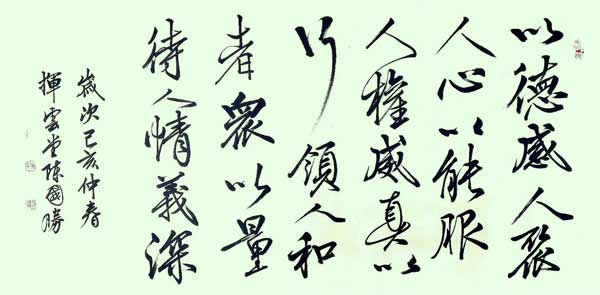 以德感人聚
人心以能服
人權威真以
行領人和
者眾以量
待人情義深
歲次己亥仲春
揮雲堂陳國勝